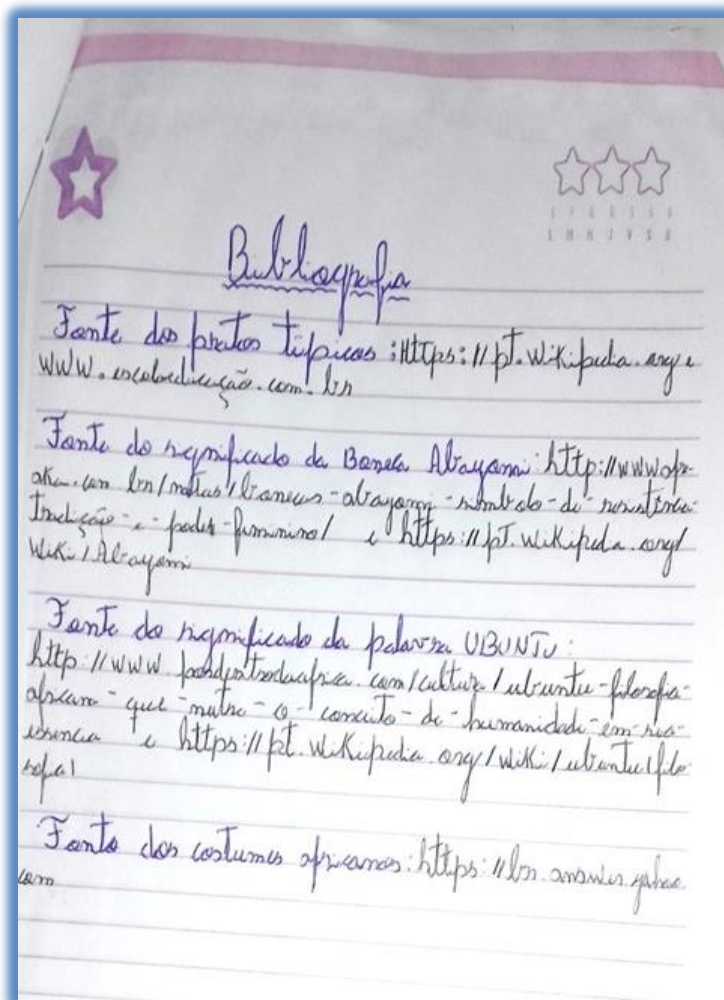 Bibliografia
Fonte dos pratos típicos: Https://pt.wikipedia.org e
www.escolaeducação.com.br
Fonte do significado da Boneca Abayomi: http://www.afre-
aka.com br/notas/bonecas-abayomi-simbolo-de-resistencia-
tradição-e-poder-feminino/ e https://pt.wikipedia.org/
Wiki/Abayomi
Fonte do significado da palavra UBUNTU:
http://www pordentrodaafrica.com/cultura/ubuntu-filosofia-
africana-que-nutre-o-conceito-de-humanidade-em-sua-
essencia e https://pt.wikipedia.org/wiki/ubuntu(filo
sofia)
Fonte dos costumes africanos: https://br.answer.yahoo.
com